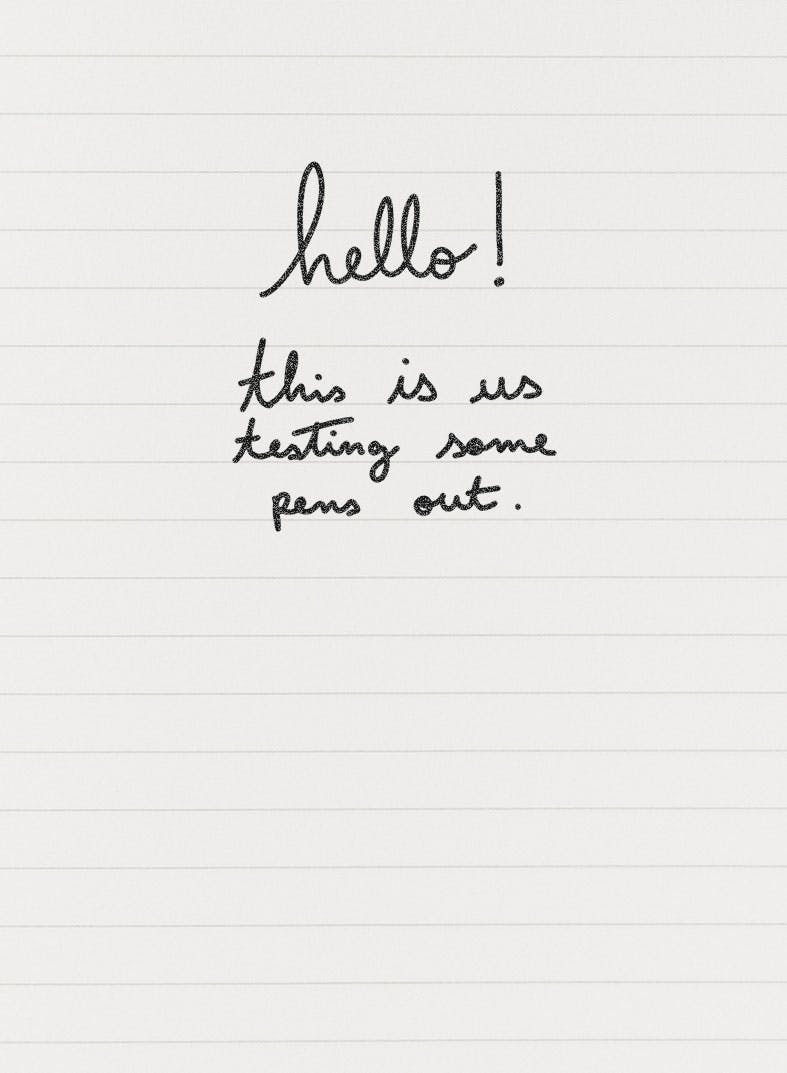 hello!
this is us
testing some
pens out.